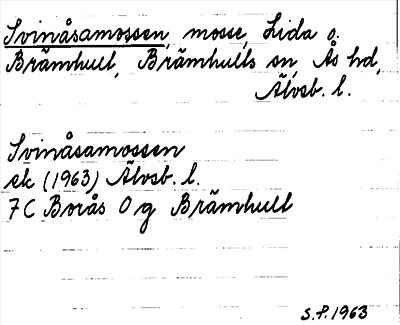 Svinåsamossen, mosse, Lida o.
Brämhult, Brämhults sn, Ås hd,
Älvsb. l.
Svinåsamossen
ek (1963) Älvsb. l.
7C Borås 0g Brämhult
S.P. 1963